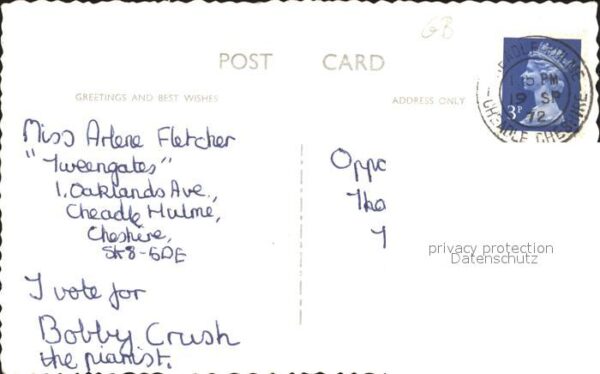 GB
POST CARD
GREETINGS AND BEST WISHES
ADDRESS ONLY
1 15 PM
19 SP
72
CHEADLE CHESHIRE
3P
Miss Arlene Fletcher
"Tweengates"
1, Oaklands Ave.,
Cheadle Hulme,
Cheshire,
SK8-6DE
I vote for
Bobby Crush
the pianist.
Oppo
Tho
T
privacy protection
Datenschutz